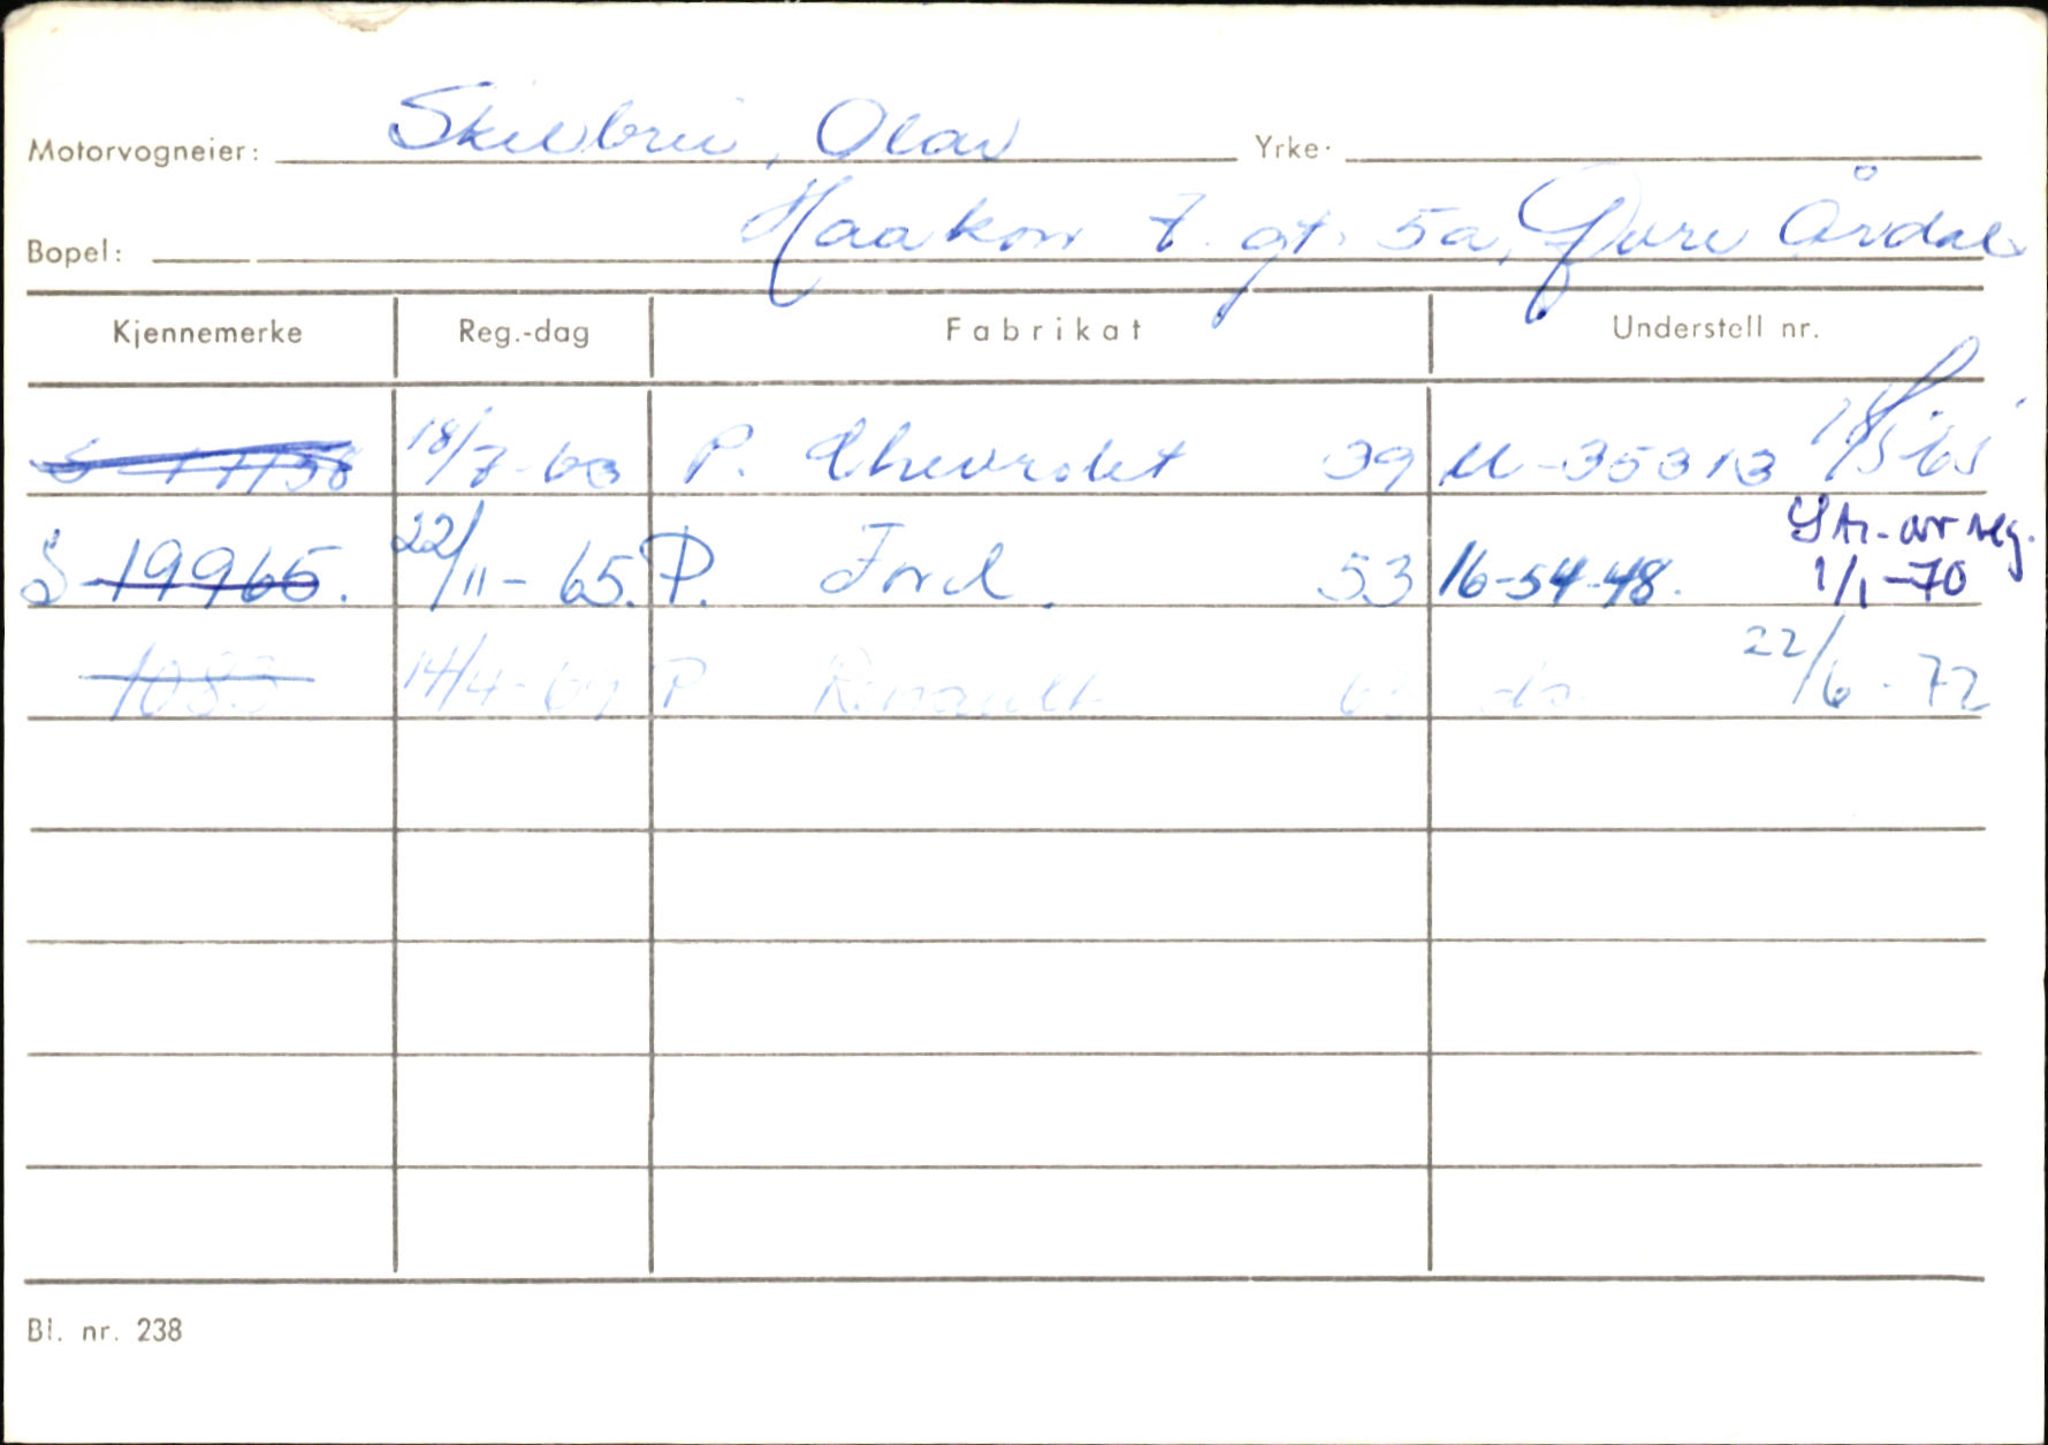 Motorvogneier: Skilbrei, Olav Yrke:
Bopel: Haakon 7. gt. 5a, Øvre Årdal
Kjennemerke Reg.-dag Fabrikat Understell nr.
18/7-63 P. Chevrolet 39 M-35313 18/5-65
S 19965. 22/11-65. P. Ford. 53 16-54-48. Str. av reg. 1/1-70
1083 14/4-69 P Renault do 22/6-72
Bl. nr. 238